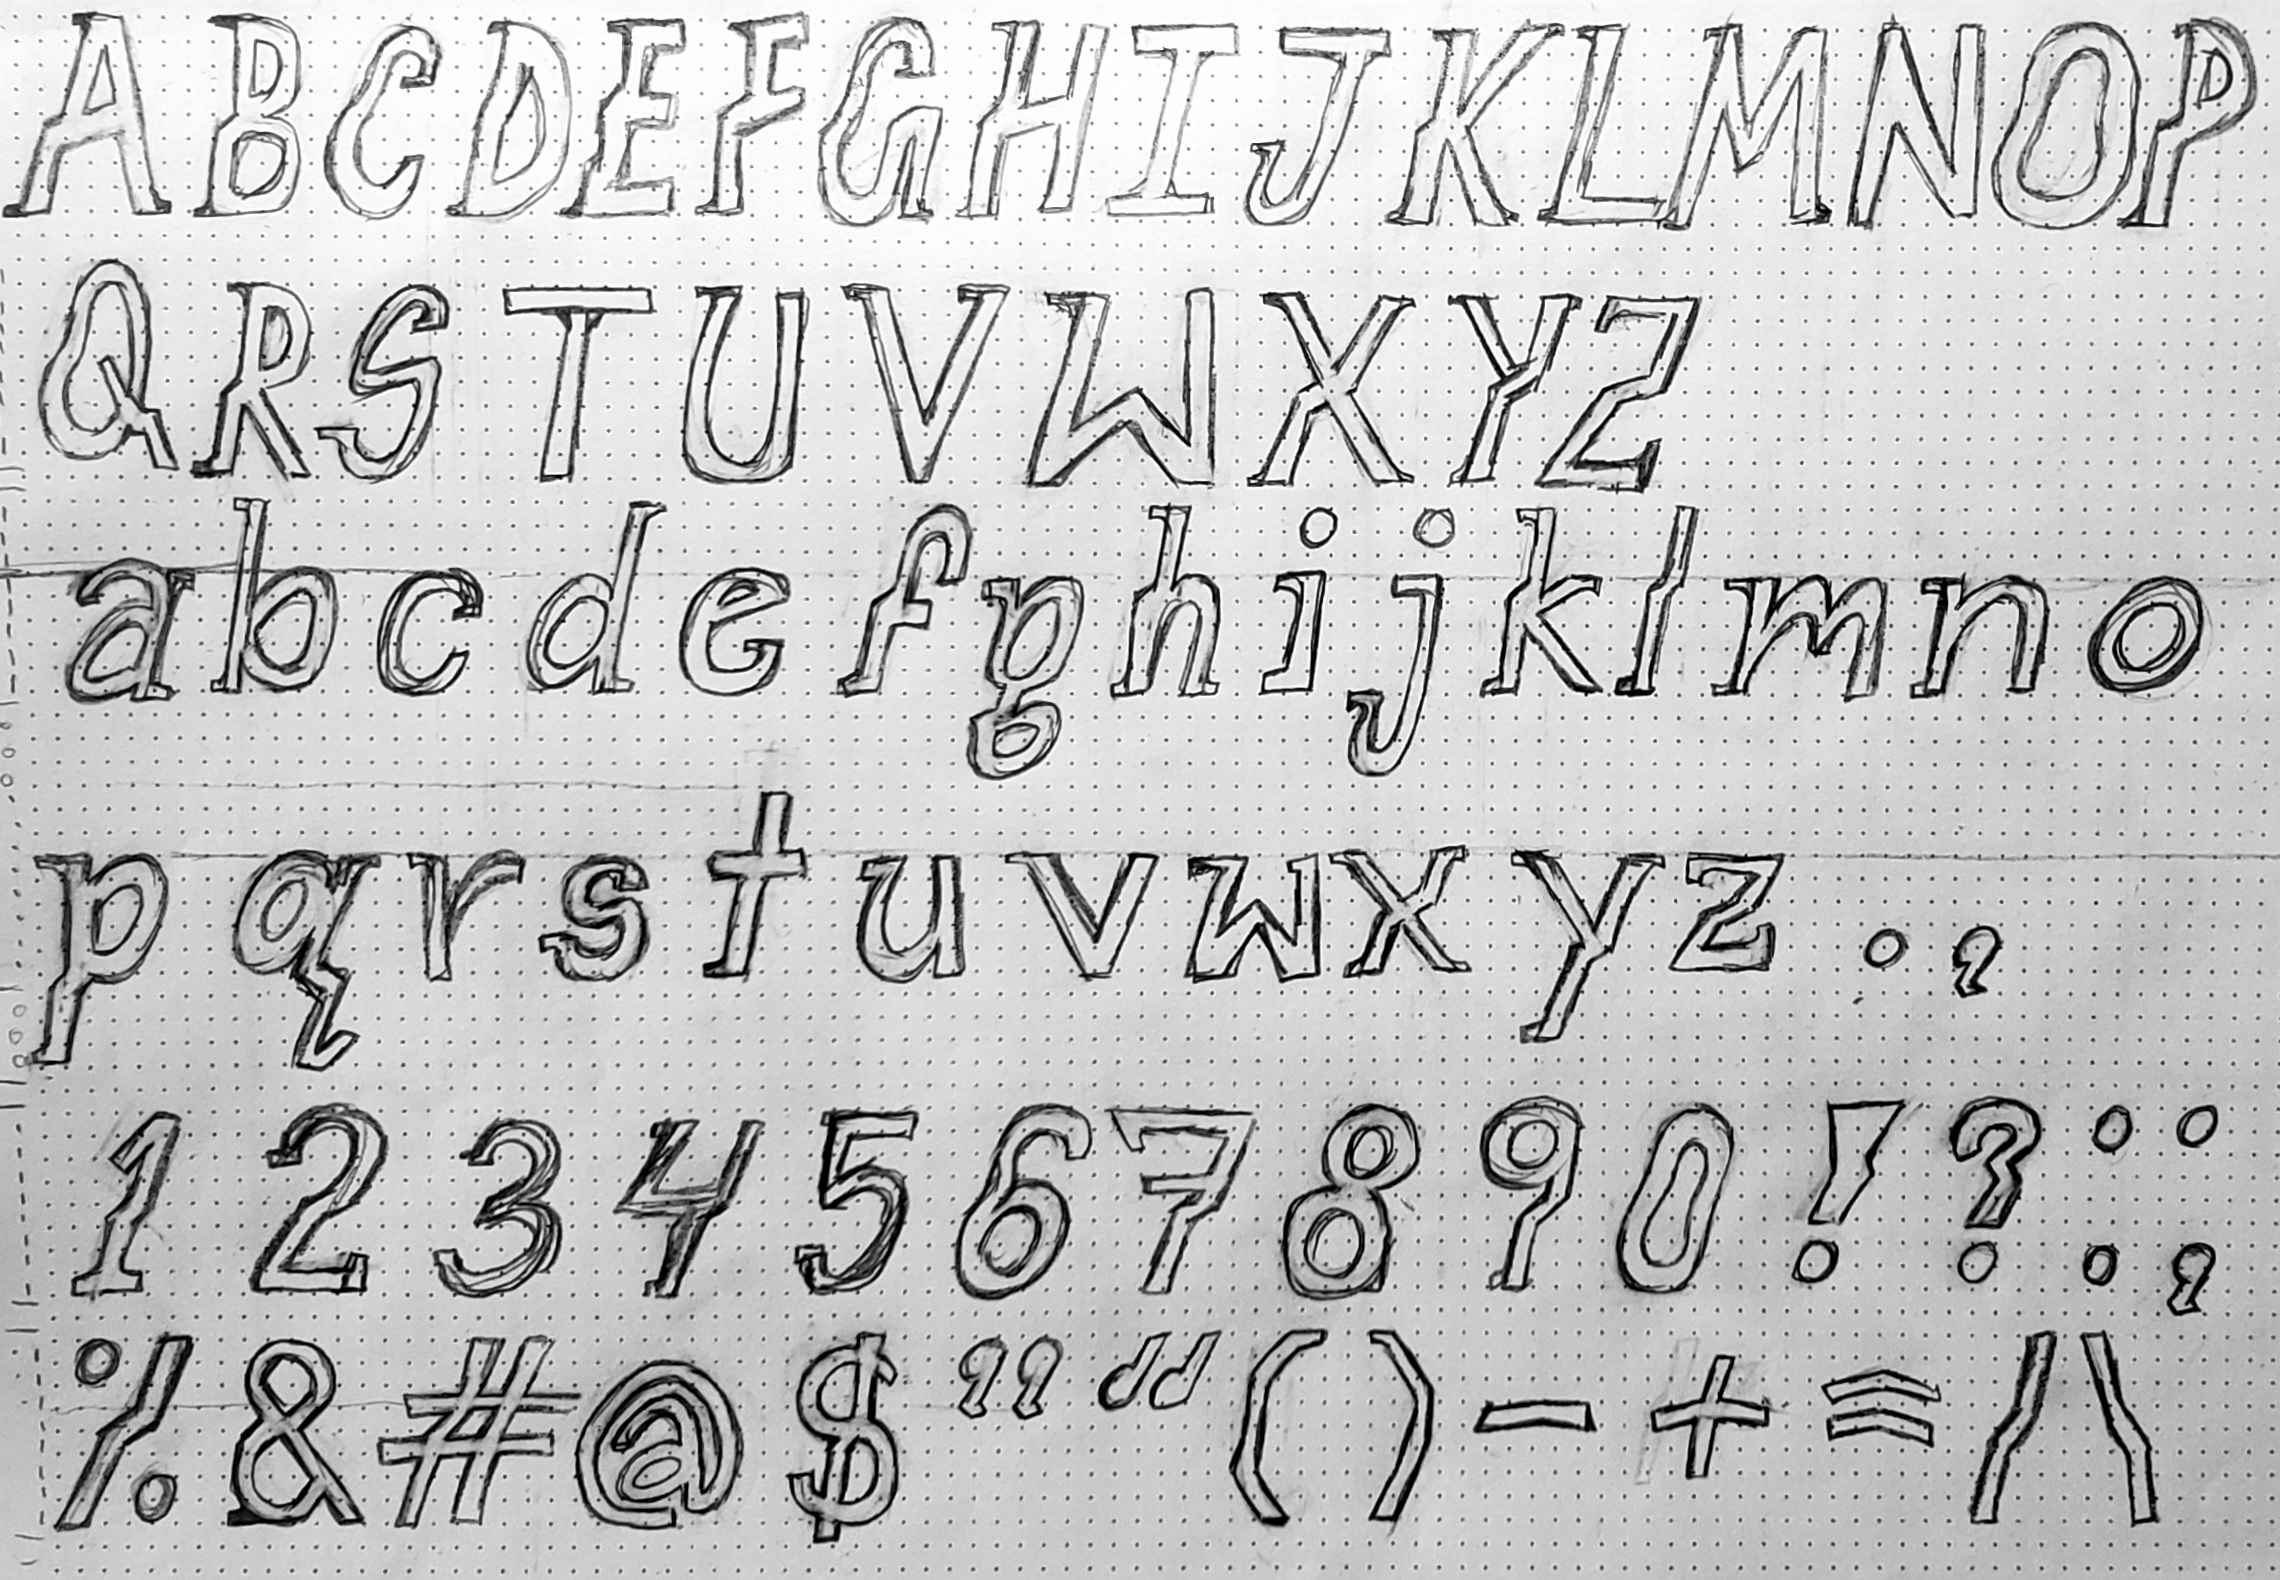 ABCDEFGHIJKLMNOP
QRSTUVWXYZ
abcdefghijklmno
pqrstuvwxyz.,
1234567890!?:;
%&#@$”“()-+=/\